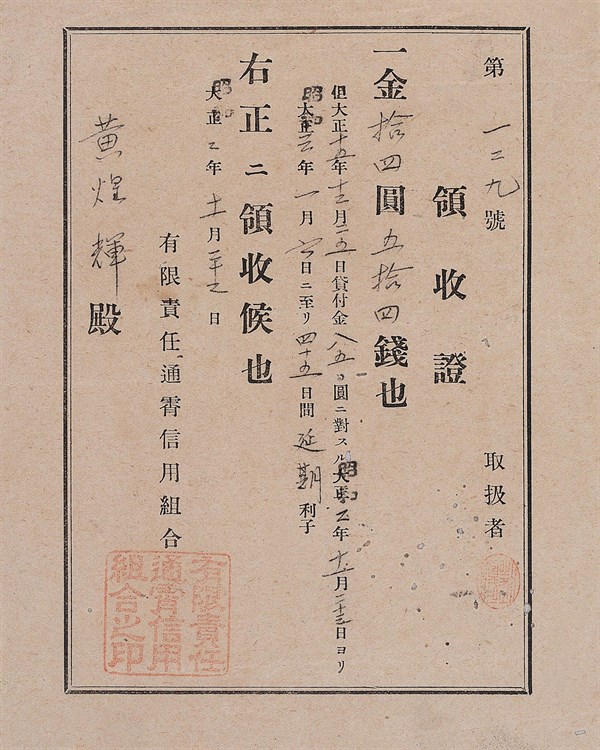 第一二九號
取扱者
領收證
一金拾四圓五拾四錢也
但大正十五年十二月二五日貸付金八五〇圓ニ對スル昭和二年十一月二十三日ヨリ
昭和三年一月六日ニ至リ四十五日間延期利子
右正ニ領收候也
昭和二年十一月二十三日
有限責任通霄信用組合
黄煌輝殿
有限責任
通霄信用
組合之印